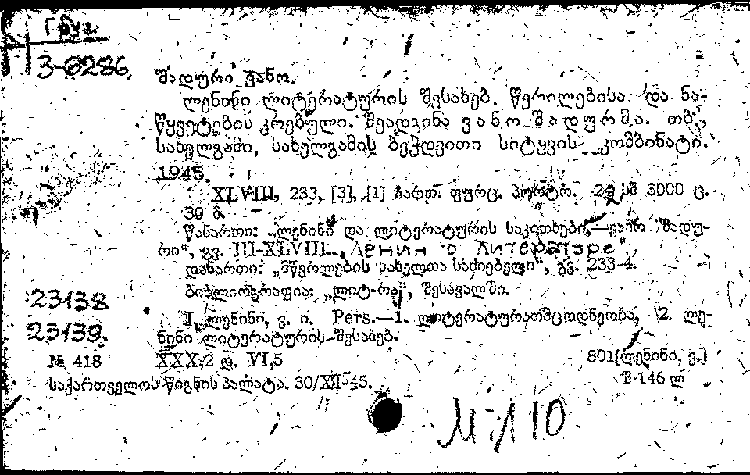 Груз.
3-6286.
შადური ვანო.
ლენინი ლიტერატურის შესახებ. წერილებისა და ნა-
წყვეტების კრებული. შეადგინა ვანო შადურმა. თბ.,
სახელგამი, სახელგამის ბეჭდვითი სიტყვის კომბინატი.
1945.
XLVIII, 233, [3], [1] ჩართ. ფურც. პორტრ. 3000 ც.
30 მ.
წინართი: „ლენინი და ლიტერატურის საკითხები—ვანო შადუ-
რი“, გვ. III-XLVIII. „Ленин о литературе“
დანართი: „მწერლების სახელთა საძიებელი“, გვ. 233-4.
ბიბლიოგრაფია: „ლიტ-რა“, შესავალში.
23138
23139.
I. ლენინი, ვ. ი. Pers.—1. ლიტერატურათმცოდნეობა, 2. ლე-
ნინი ლიტერატურის შესახებ.
№ 418 XXX,2 დ. VI,5 801[ლენინი, ვ.]
საქართველოს წიგნის პალატა. 30/XI-45. 146 ლ
110